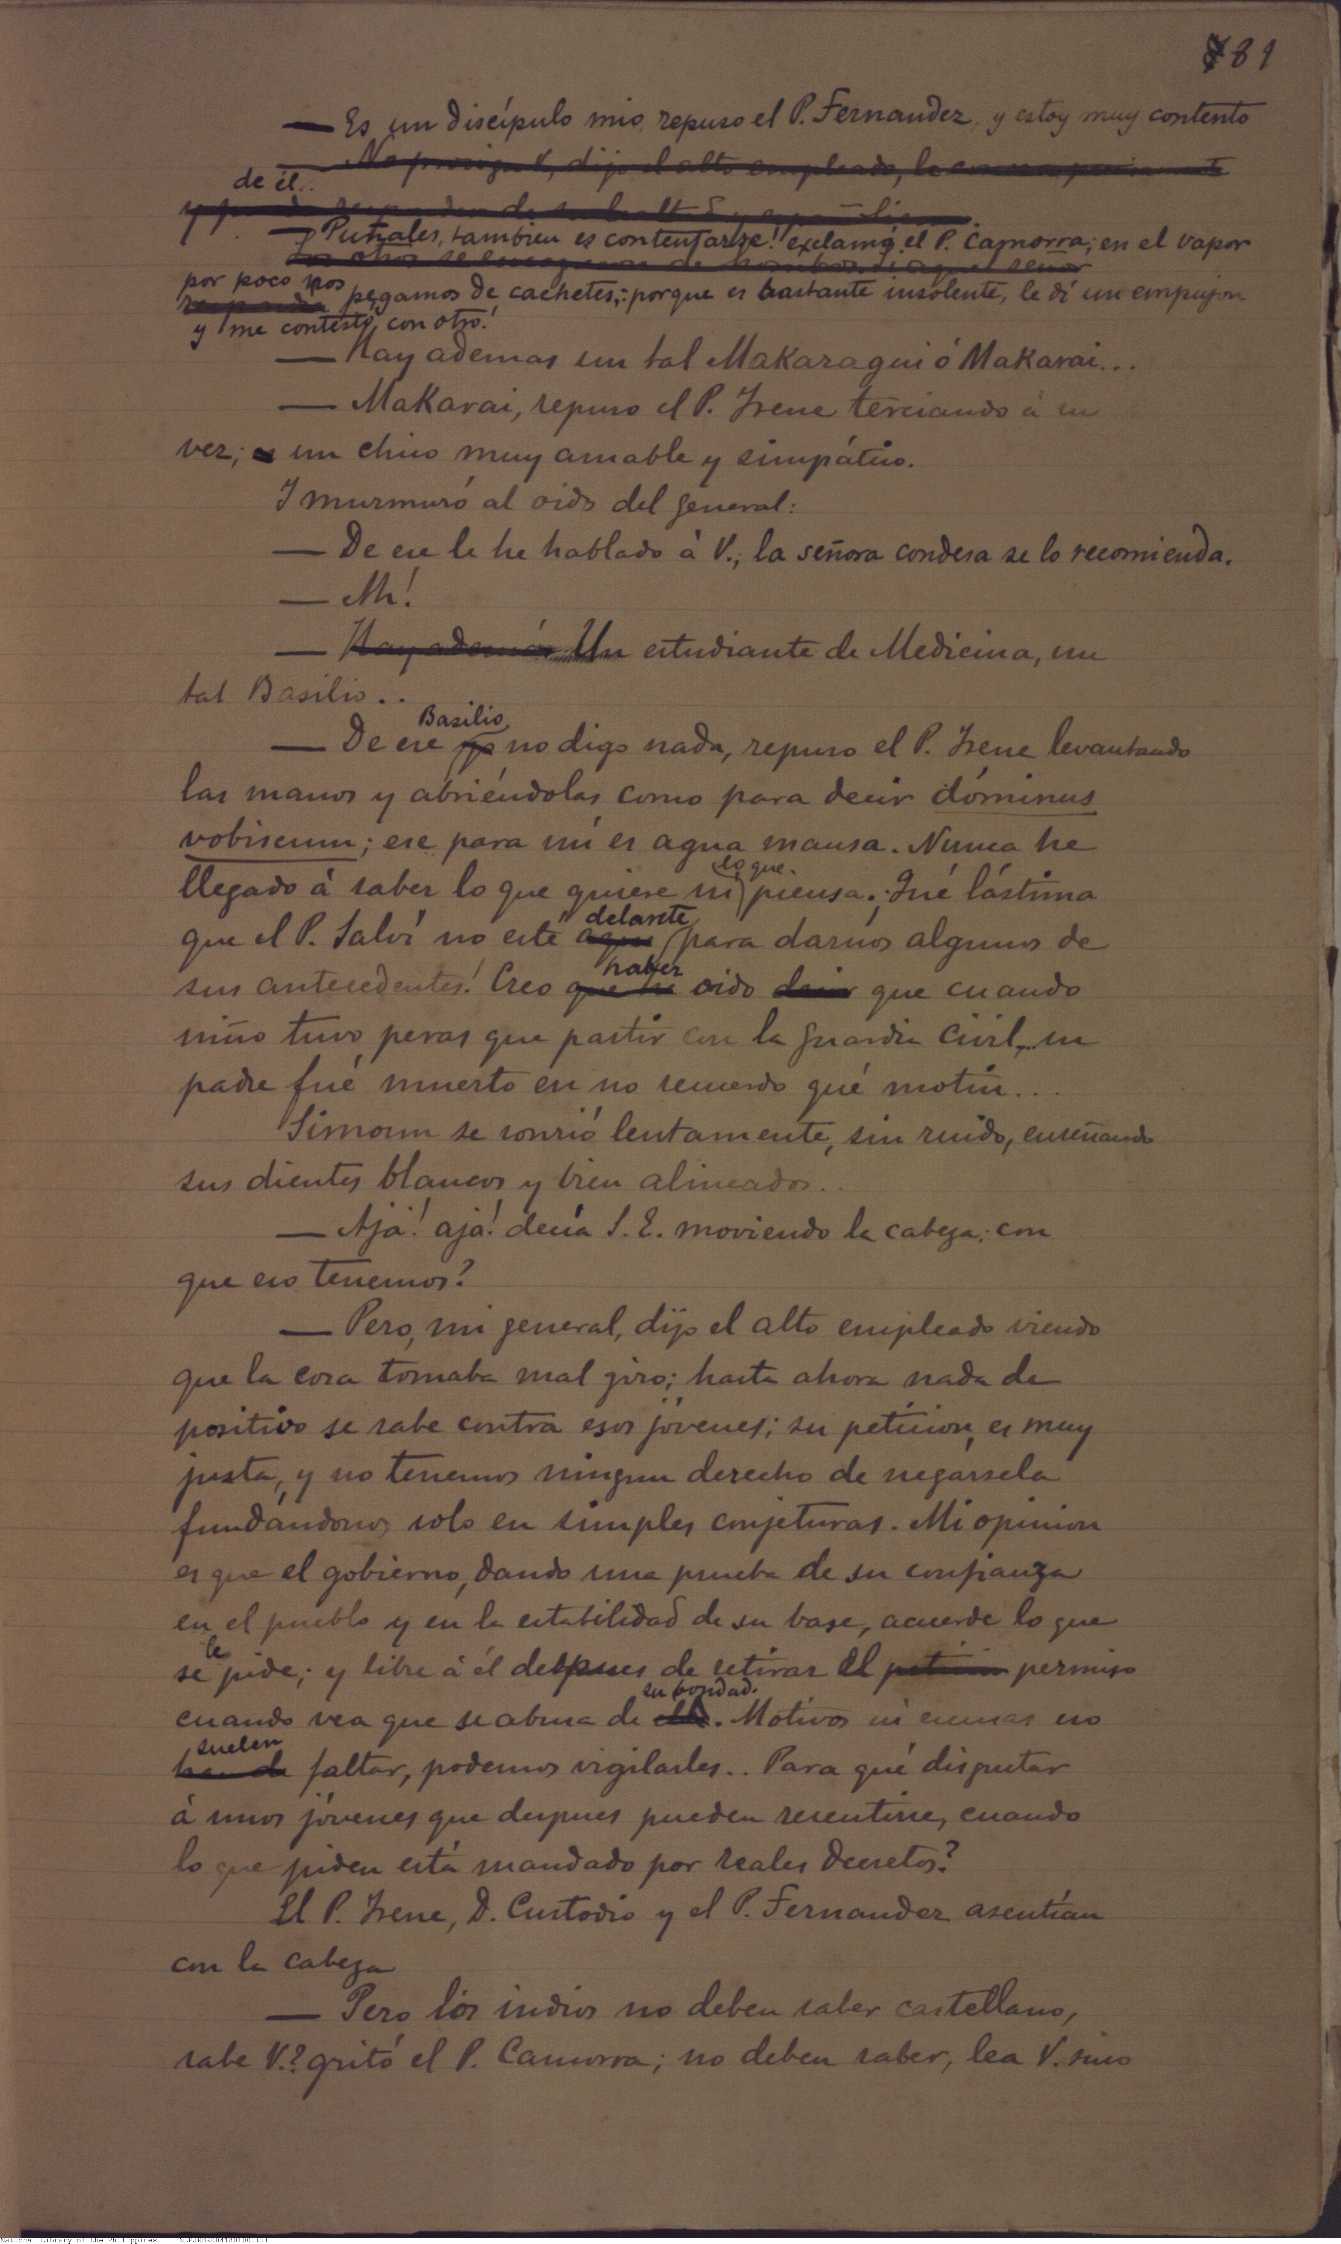 81
— Es un discípulo mio, repuso el P. Fernandez, y estoy muy contento
— No prosiga V., dijo el alto empleado, le
de él..
— Puñales, tambien es contentarse! exclamó el P. Camorra; en el vapor
Los otros se encogieron de hombros. Si aquel señor
por poco nos pegamos de cachetes,: porque es bastante insolente, le dí un empujon
y me contestó con otro!
— Hay ademas un tal Makaragui ó Makarai...
— Makarai, repuso el P. Irene terciando á su
vez; un chico muy amable y simpático.
I murmuró al oido del general:
— De ese le he hablado á V., la señora condesa se lo recomienda.
— Ah!
— Hay además Un estudiante de Medicina, un
tal Basilio..
Basilio
— De ese yo no digo nada, repuso el P. Irene levantando
las manos y abriéndolas como para decir dóminus
vobiscum; ese para mí es agua mansa. Nunca he
lo que
llegado á saber lo que quiere ni piensa. Qué lástima
delante
que el P. Salví no esté aquí para darnos algunos de
haber
sus antecedentes! Creo que he oido decir que cuando
niño tuvo peras que partir con la Guardia Civil, su
padre fué muerto en no recuerdo qué motin...
Simoun se sonrió lentamente, sin ruido, enseñando
sus dientes blancos y bien alineados..
— Ajá! ajá! decía S. E. moviendo la cabeza: con
que eso tenemos?
— Pero, mi general, dijo el alto empleado viendo
que la cosa tomaba mal giro; hasta ahora nada de
positivo se sabe contra esos jóvenes; su peticion, es muy
justa, y no tenemos ningun derecho de negarsela
fundándonos solo en simples conjeturas. Mi opinion
es que el gobierno, dando una prueba de su confianza
en el pueblo y en la estabilidad de su base, acuerde lo que
le
se pide; y libre á él despues de retirar el peticion permiso
su bondad.
cuando vea que se abusa de ella. Motivos ni escusas no
suelen
han de faltar, podemos vigilarles.. Para qué disgustar
á unos jóvenes que despues pueden resentirse, cuando
lo que piden está mandado por reales decretos?
El P. Irene, D. Custodio y el P. Fernandez asentían
con la cabeza
— Pero los indios no deben saber castellano,
sabe V.? gritó el P. Camorra; no deben saber, lea V. sino